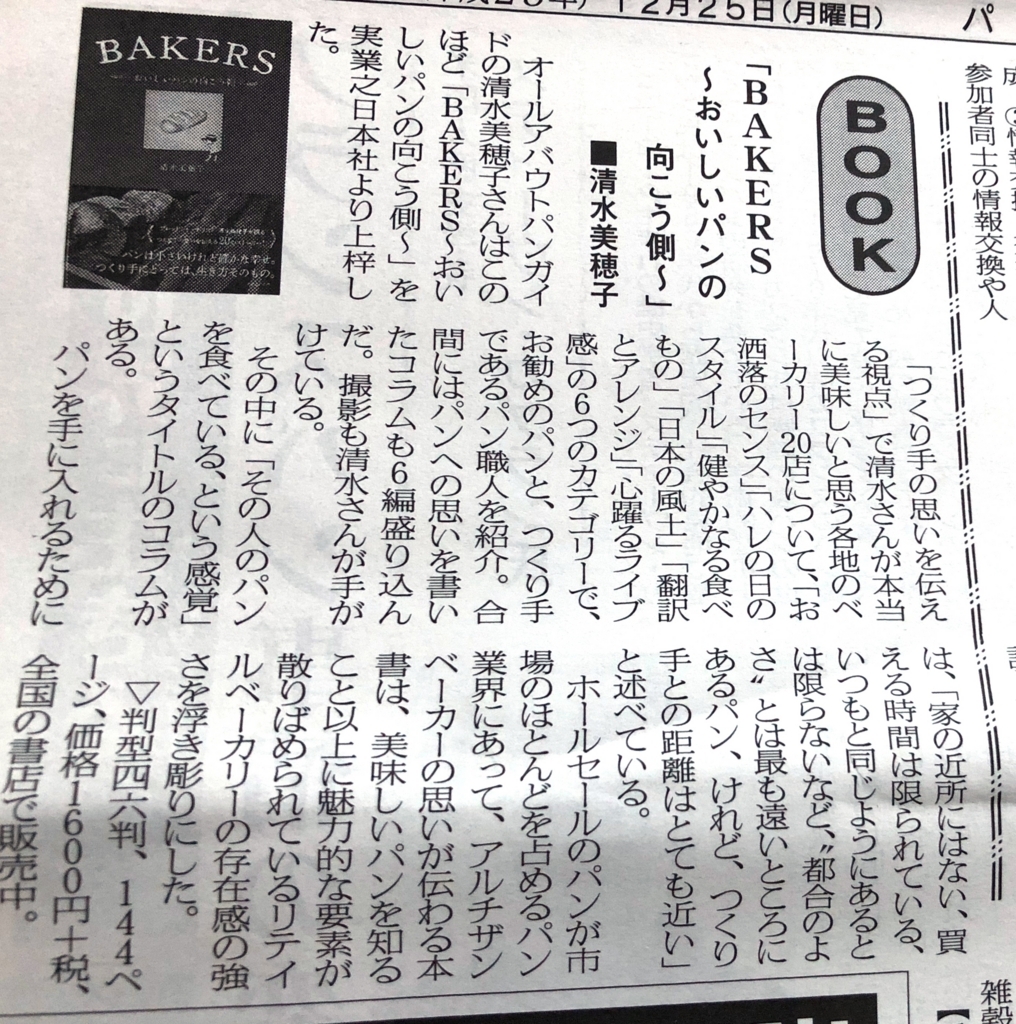 12月25日(月曜日)
パ
参加者同士の情報交換や人
BOOK
「BAKERS
~おいしいパンの
向こう側~」
■清水美穂子
オールアバウトパンガイ
ドの清水美穂子さんはこの
ほど「BAKERS~おい
しいパンの向こう側~」を
実業之日本社より上梓し
た。
BAKERS
おいしいパンの向こう側
清水美穂子
パンは小さいけれど確かな幸せ。
つくり手にとっては、生き方そのもの。
「つくり手の思いを伝え
る視点」で清水さんが本当
に美味しいと思う各地のベ
ーカリー20店について、「お
洒落のセンス」「ハレの日の
スタイル」「健やかなる食べ
もの」「日本の風土」「翻訳
とアレンジ」「心躍るライブ
感」の6つのカテゴリーで、
お勧めのパンと、つくり手
であるパン職人を紹介。合
間にはパンへの思いを書い
たコラムも6編盛り込ん
だ。撮影も清水さんが手が
けている。
その中に「その人のパン
を食べている、という感覚」
というタイトルのコラムが
ある。
パンを手に入れるために
は、「家の近所にはない、買
える時間は限られている、
いつもと同じようにあると
は限らないなど、〝都合のよ
さ〟とは最も遠いところに
あるパン、けれど、つくり
手との距離はとても近い」
と述べている。
ホールセールのパンが市
場のほとんどを占めるパン
業界にあって、アルチザン
ベーカーの思いが伝わる本
書は、美味しいパンを知る
こと以上に魅力的な要素が
散りばめられているリティ
ルベーカリーの存在感の強
さを浮き彫りにした。
▽判型四六判、144ペ
ージ、価格1600円+税、
全国の書店で販売中。
雑穀